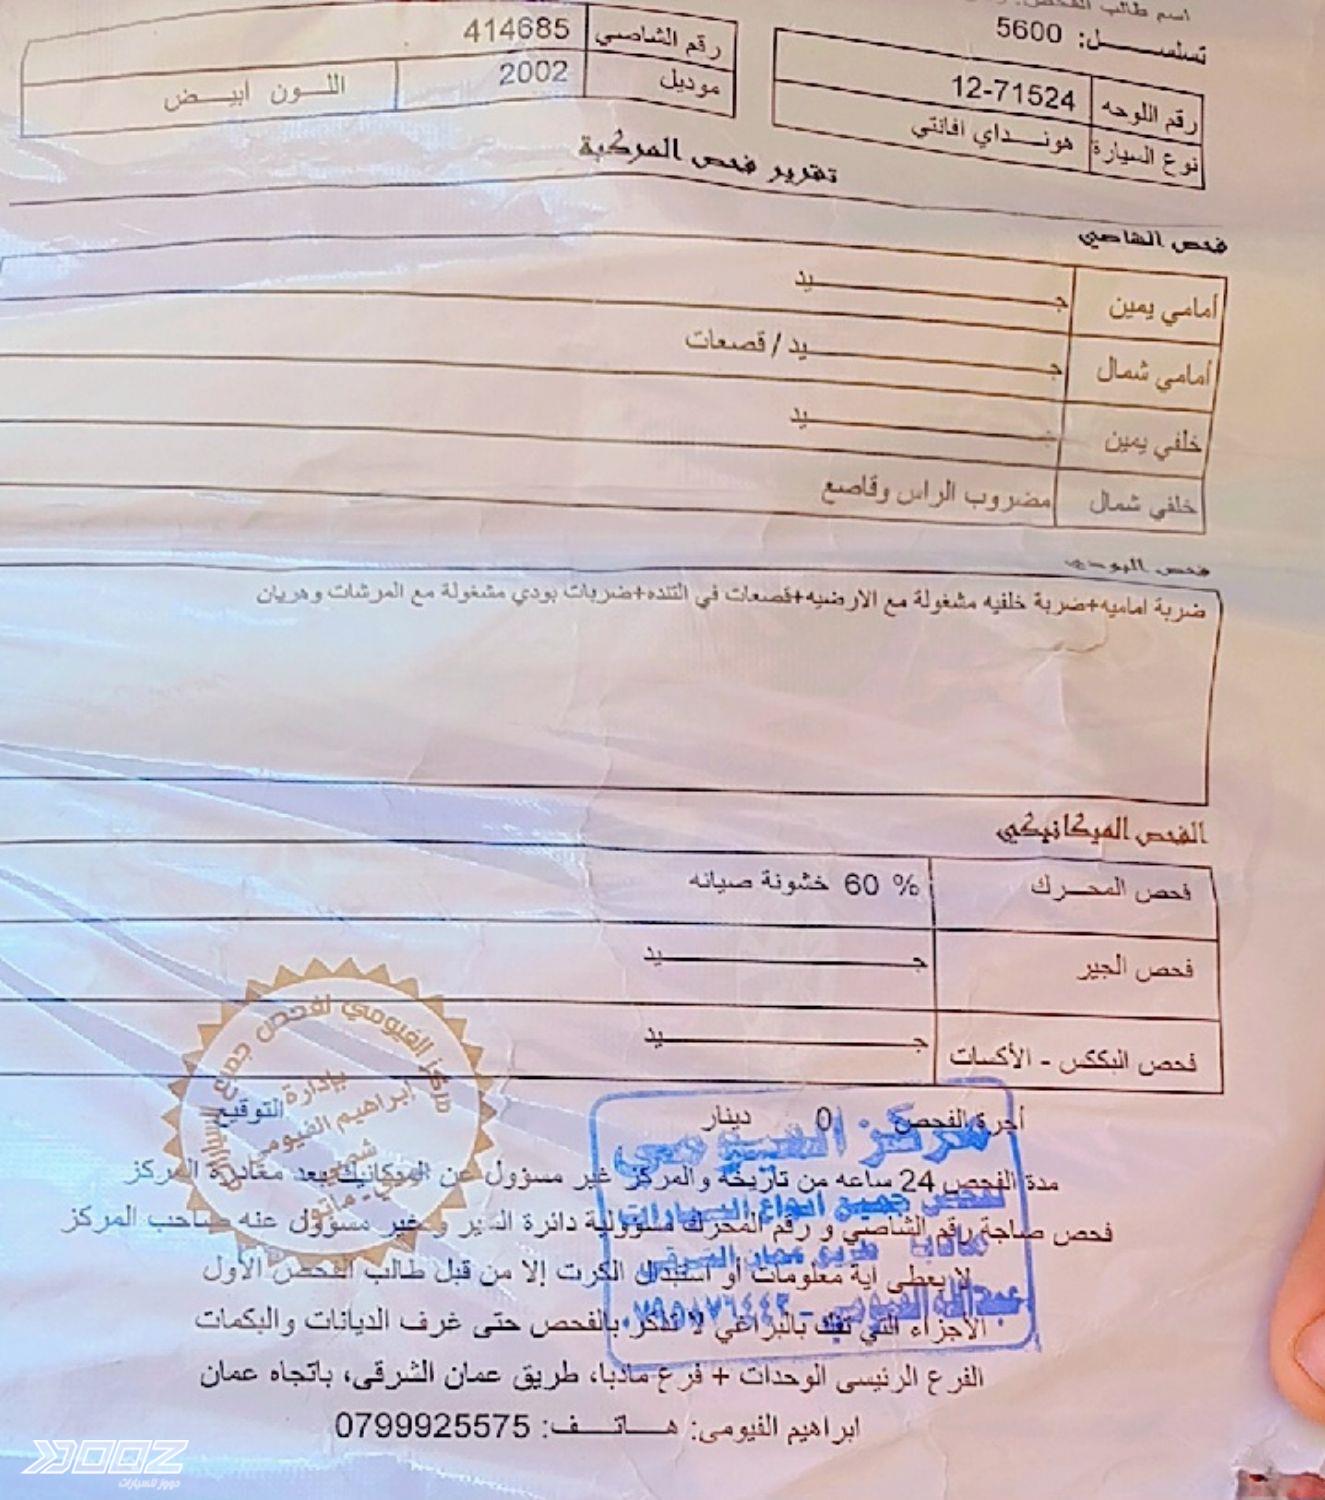 اسم طالب الفحص:
تسلسل: 5600
رقم اللوحه 12-71524
نوع السيارة هونداي افانتي
رقم الشاصي 414685
موديل 2002 اللون ابيض
تقرير فحص المركبة
فحص الشاصي
أمامي يمين جيد
أمامي شمال جيد / قصعات
خلفي يمين جيد
خلفي شمال مضروب الراس وقاصع
فحص البودي
ضربة اماميه+ضربة خلفيه مشغولة مع الارضيه+قصعات في التنده+ضربات بودي مشغولة مع المرشات وهريان
الفحص الميكانيكي
فحص المحرك 60 % خشونة صيانه
فحص الجير جيد
فحص البككس - الأكسات جيد
أجرة الفحص 0 دينار التوقيع
مدة الفحص 24 ساعه من تاريخه والمركز غير مسؤول عن الميكانيك بعد مغادرة المركز
فحص صاجة رقم الشاصي و رقم المحرك مسؤولية دائرة السير و غير مسؤول عنه صاحب المركز
لا يعطى أية معلومات أو استبدال الكرت إلا من قبل طالب الفحص الأول
الأجزاء التي تفك بالبراغي لا تذكر بالفحص حتى غرف الديانات والبكمات
الفرع الرئيسي الوحدات + فرع مادبا، طريق عمان الشرقي، باتجاه عمان
ابراهيم الفيومي: هاتف: 0799925575
مركز الفيومي لفحص جميع
بإدارة
إبراهيم الفيومي
مركز الفيومي
لفحص جميع انواع السيارات
مادبا طريق عمان الشرقي
عبدالله الفيومي -
DOOZ
دووز للسيارات